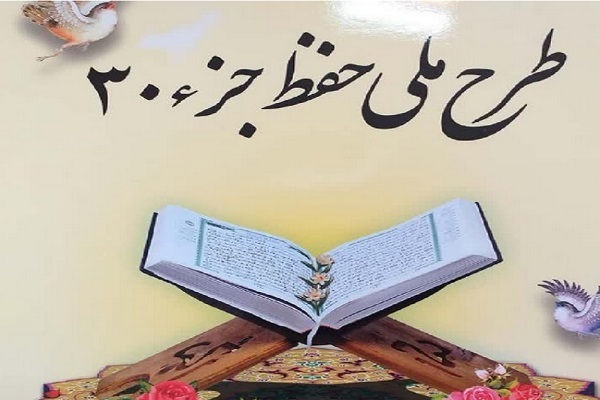 طرح ملی حفظ جزء ۳۰